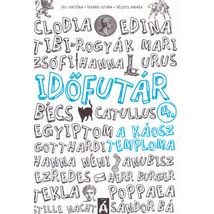 ZELI VIKTÓRIA • TASNÁDI ISTVÁN • MÉSZÖLY ANDREA
CLODIA EDINA
TIBI-ROGYÁK MARI
ZSÓFI HANNA URUS
IDŐFUTÁR
BÉCS CATULLUS 4.
EGYIPTOM A KÁOSZ
GOTTHARDI TEMPLOMA
HANNA NÉNI ANUBISZ
EZREDES HERR BURGER
TEKLA POPPAEA
STILLE NACHT A SÁNDOR BÁ